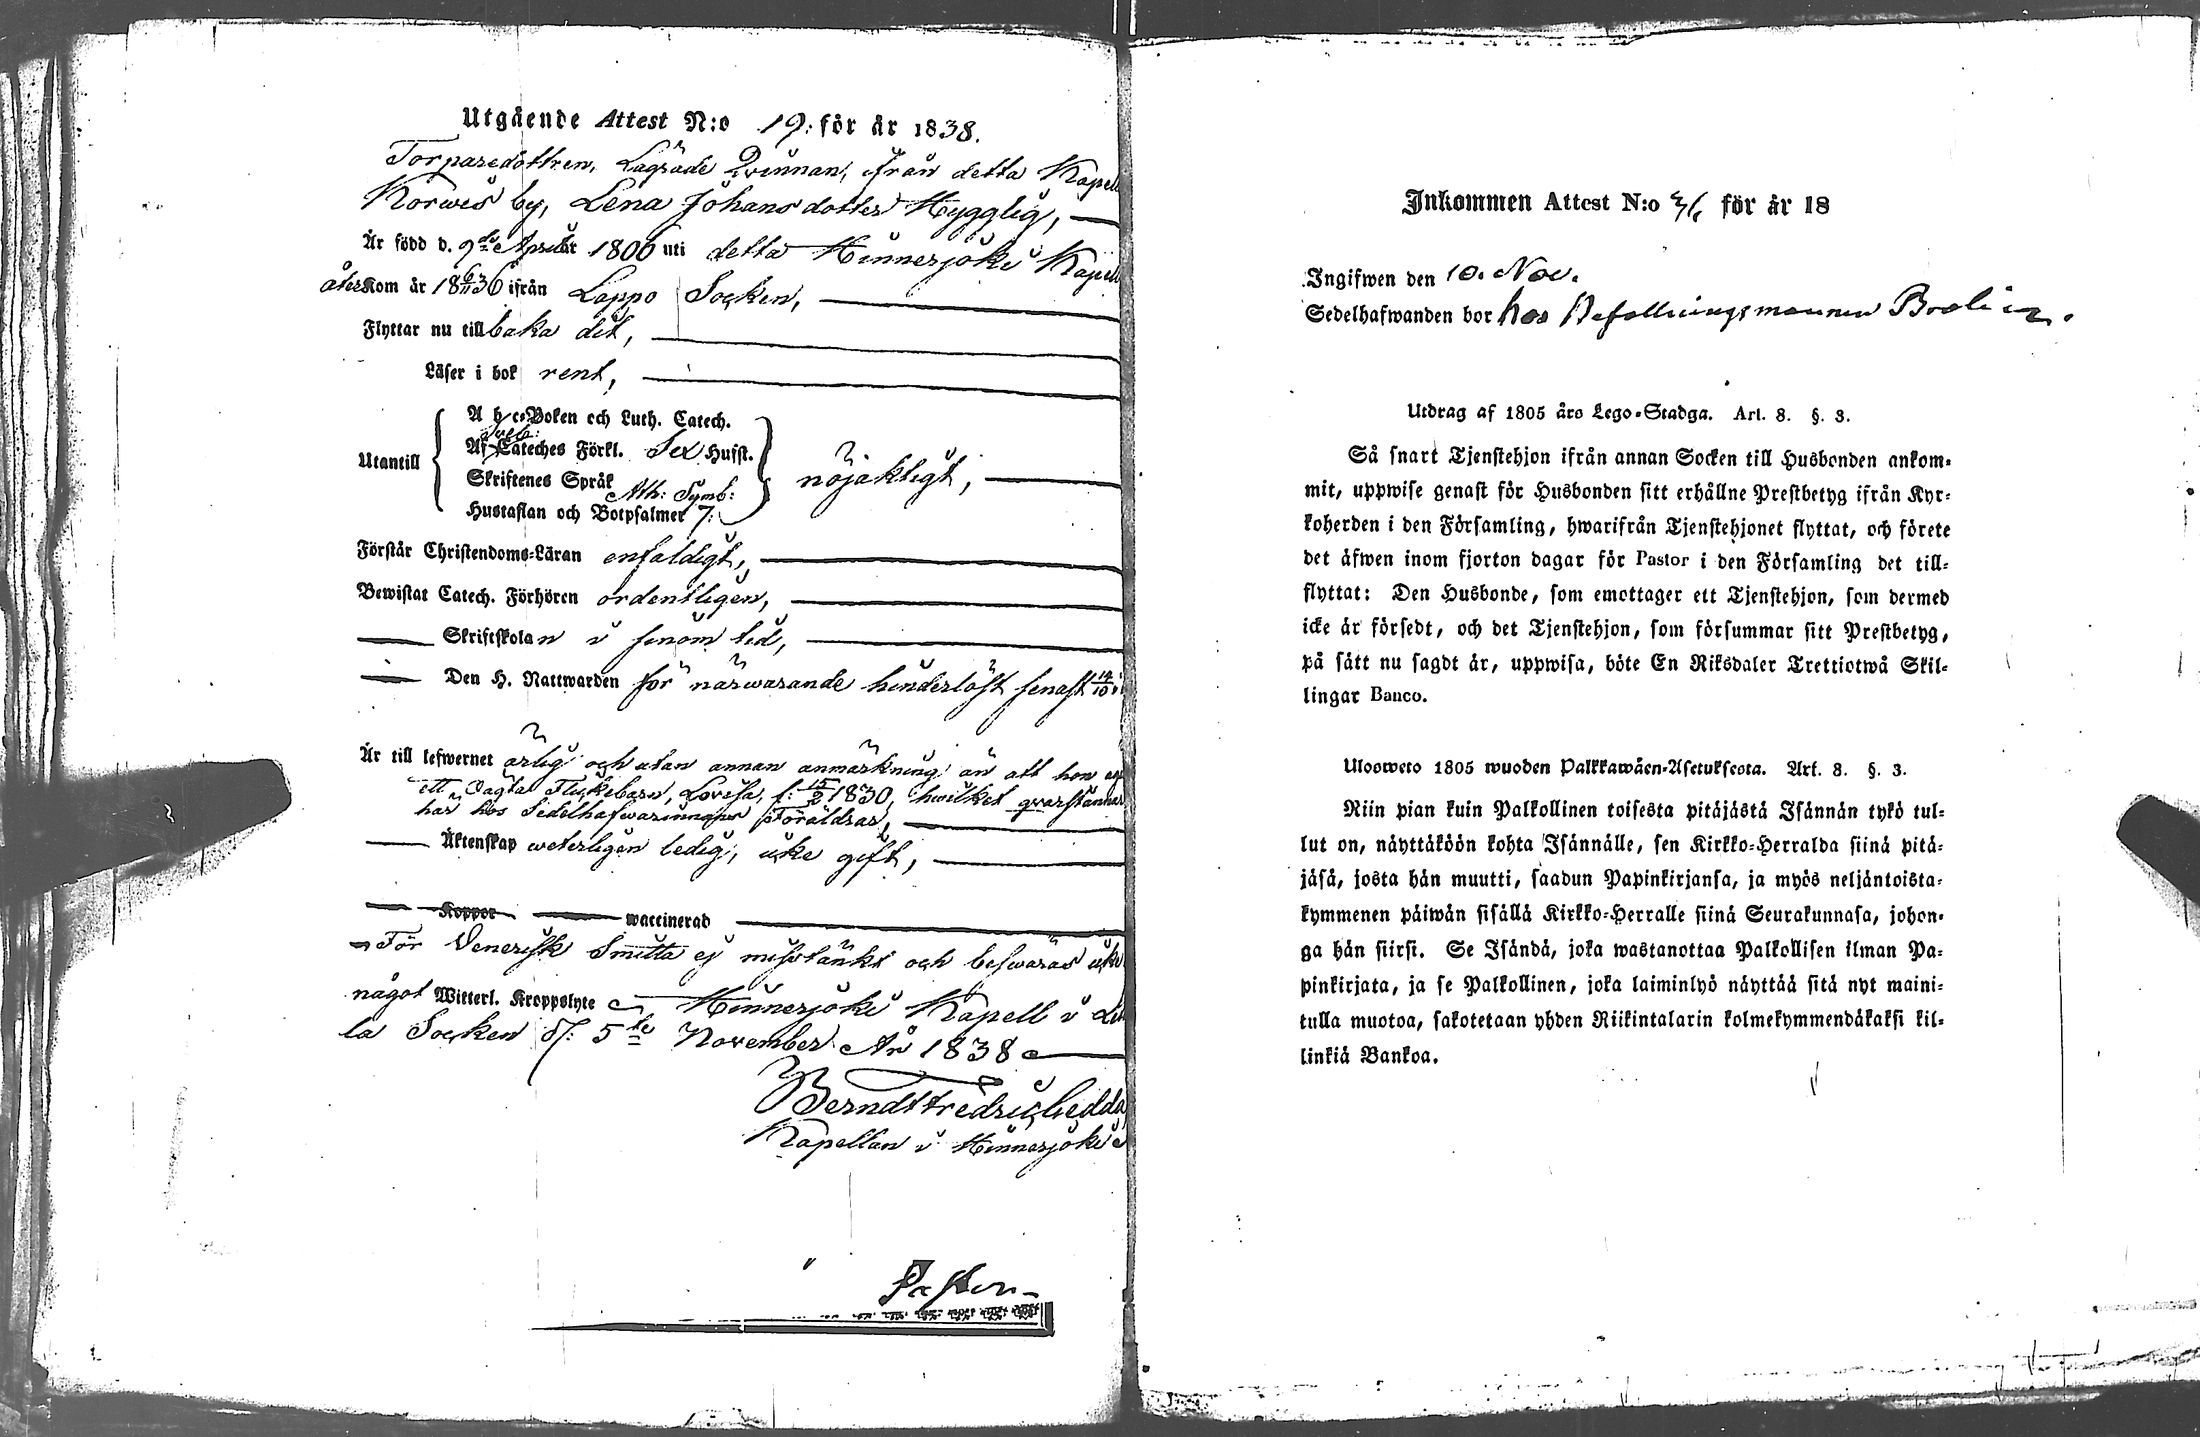 Utgående Attest N:o 19: för år 1838.
Torparedottren, Lägrade Qvinnan, ifrån detta Kapell
Korwes by, Lena Johansdotter Hygglig,
Är född d. 9de April år 1806 uti detta Hinnerjoki Kapell
återKom år 18 6/11 36 ifrån Lappo Socken,
Flyttar nu tillbaka dit,
Läser i bok rent,
A b c-Boken och Luth. Catech.
Af Sveb: Cateches Förkl. Sex Husst.
Utantill
Skriftenes Språk nöjaktigt,
Ath: Symb:
Hustaflan och Botpsalmer 7:
Förstår Christendoms-Läran enfaldigt,
Bewistat Catech. Förhören ordentligen,
Skriftskolan i sinom tid,
Den H. Nattwarden för närwarande hinderlöst senast 14/10
Är till lefwernet ärlig och utan annan anmärkning än att hon
ett oägta Flickebarn, Lovisa, f: 15/2 1830, hwilket qvarstannar
här hos Sedelhafwarinnans Föräldrar,
Äktenskap weterligen ledig, icke gift,
Koppor waccinerad
För Venerisk Smitta ej misstänkt och beswäras icke
något Witterl. Kroppslyte Hinnerjoki Kapell i
la Socken d. 5te November År 1838
Berndt Fredric
Kapellan i Hinnerjoki
Pastor
Inkommen Attest N:o för år 18
Ingifwen den 10. Nov.
Sedelhafwanden bor hos Befallningsmannen Brolin.
Utdrag af 1805 års Lego-Stadga. Art. 8. §. 3.
Så snart Tjenstehjon ifrån annan Socken till Husbonden ankom-
mit, uppwise genast för Husbonden sitt erhållne Prestbetyg ifrån Kyr-
koherden i den Församling, hwarifrån Tjenstehjonet flyttat, och förete
det äfwen inom fjorton dagar för Pastor i den Församling det till-
flyttat: Den Husbonde, som emottager ett Tjenstehjon, som dermed
icke är försedt, och det Tjenstehjon, som försummar sitt Prestbetyg,
på sätt nu sagdt är, uppwisa, böte En Riksdaler Trettiotwå Skil-
lingar Banco.
Ulosweto 1805 wuoden Palkkawäen-Asetuksesta. Art. 8. §. 3.
Niin pian kuin Palkollinen toisesta pitäjästä Isännän tykö tul-
lut on, näyttäköön kohta Isännälle, sen Kirkko-Herralda siinä pitä-
jäsä, josta hän muutti, saadun Papinkirjansa, ja myös neljäntoista-
kymmenen päiwän sisällä Kirkko-Herralle siinä Seurakunnasa, johon-
ga hän siirsi. Se Isändä, joka wastanottaa Palkollisen ilman Pa-
pinkirjata, ja se Palkollinen, joka laiminlyö näyttää sitä nyt maini-
tulla muotoa, sakotetaan yhden Riikintalarin kolmekymmendäkaksi kil-
linkiä Bankoa.